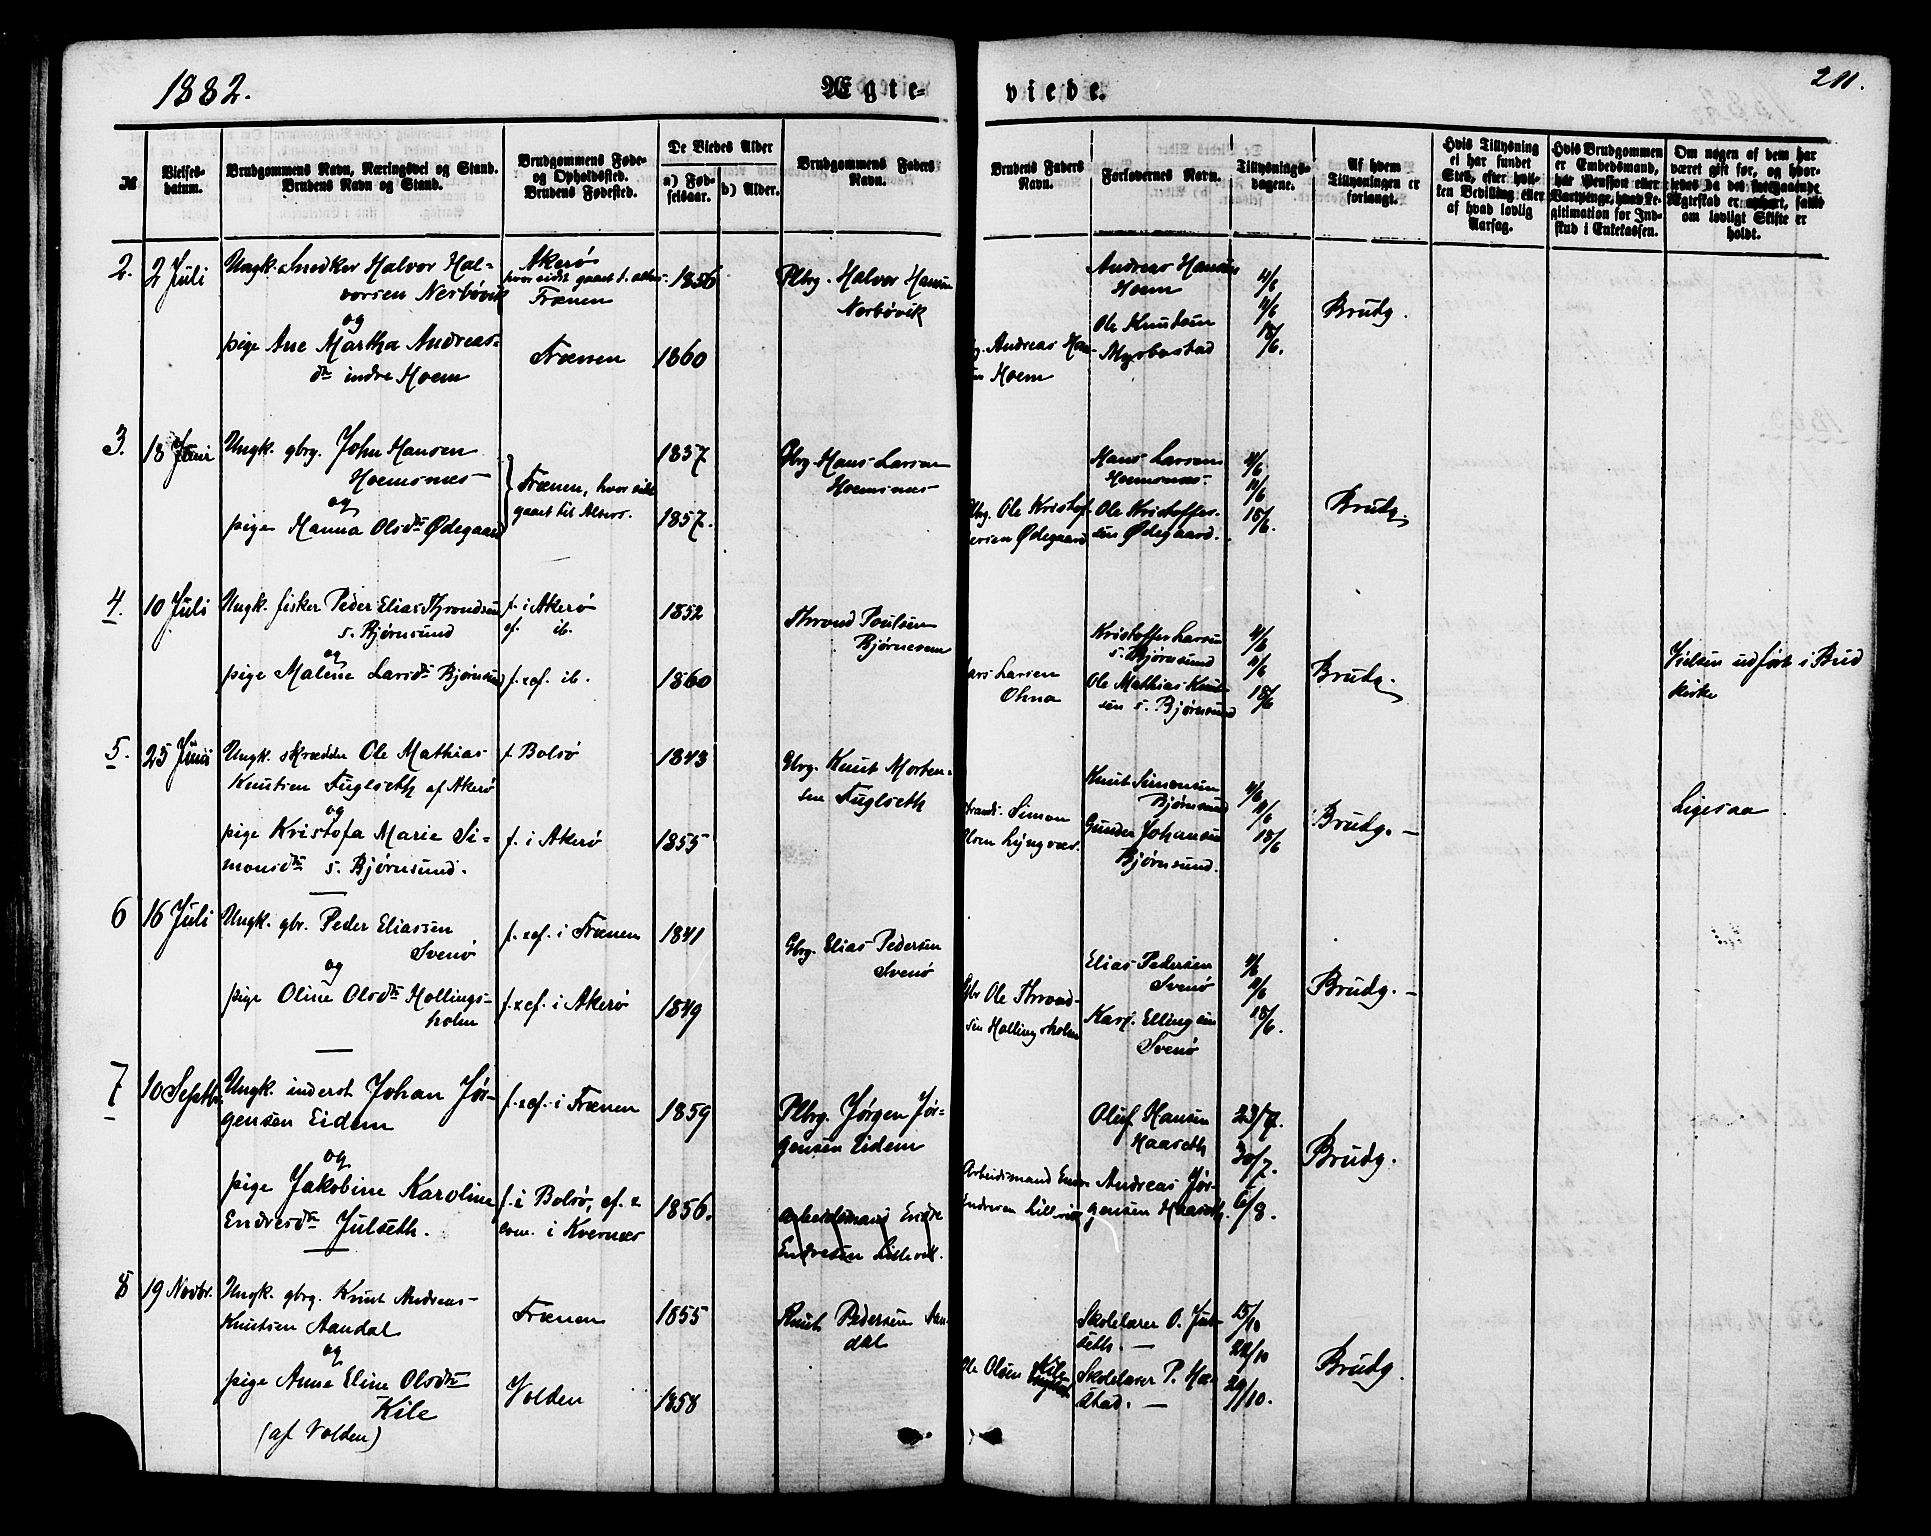 1882.
Ægte-
viede.
211.
№
Vielses-
datum.
Brudgommens Navn, Næringsvei og Stand.
Brudens Navn og Stand.
Brudgommens Føde-
og Opholdssted.
Brudens Fødested.
De Viedes Alder
a) Fød-
selsaar.
b) Alder.
Brudgommens Faders
Navn.
Brudens Faders
Navn.
Forlovernes Navn.
Tillysnings-
dagene.
Af hvem
Tillysningen er
forlangt.
Hvis Tillysning
ei har fundet
Sted, efter hvil-
ken Bevilling eller
af hvad lovlig
Aarsag.
Hvis Brudgommen
er Embedsmand,
har Pension eller
Vartpenge, hvad Le-
gitimation for Ind-
skud i Enkekassen.
Om nogen af dem har
været gift før, og hvor-
ledes da det foregaaende
Ægteskab er ophørt, samt
om lovligt Skifte er
holdt.
2. 2 Juli
Ungk. Snedker Halvor Hal-
vorsen Nerbövik
og
pige Ane Martha Andreas-
dtr indre Hoem
Akerö
hvor sidst gaaet t. alters
Frænen
Frænen
1856
1860
Plbrg. Halvor Hansen
Nerbövik
Andreas Han-
sen Hoem
Andreas Hansen
Hoem
Ole Knutsen
Myrbostad
4/6
11/6
18/6.
Brudg.
3. 18 Juni
Ungk. gbrg. John Hansen
Hoemsnes
og
pige Hanna Olsdtr Ødegaard
Frænen, hvor sidst
gaaet til Alters.
1837
1857.
Gbrg. Hans Larsen
Hoemsnæs
Gbrg. Ole Kristof-
fersen Ødegaard
Hans Larsen
Hoemsnæs.
Ole Kristoffer-
sen Ødegaard.
4/6
11/6
18/6.
Brudg.
4. 10 Juli
Ungk. fisker Peder Elias Throndsen
s. Bjørnsund
og
pige Malene Larsdtr Bjørnsund
f. i Akerö
cf. ib.
f. & cf. ib.
1852
1860
Thrond Poulsen
Bjørnerem
Lars Larsen
Ohna
Kristoffer Larsen
s. Bjørnsund
Ole Mathias Knut-
sen s. Bjørnsund
4/6
11/6
18/6
Brudg.
Vielsen udført i Bud
kirke
5. 25 Juni
Ungk. skrædder Ole Mathias
Knutsen Fuglseth af Akerö
og
pige Kristofa Marie Si-
monsdtr s. Bjørnsund.
f. Bolsö
f. i Akerö
1843
1855
Gbrg. Knut Morten-
sen Fuglseth
Strands. Simon
Olsen Lyngvær.
Knut Simonsen
Bjørnsund
Gunder Johansen
Bjørnsund.
4/6
11/6
18/6
Brudg. -
Ligesaa
6 16 Juli
Ungk. gbr. Peder Eliassen
Svenö
og
pige Oline Olsdtr Hollings-
holm
f. & cf. i Frænen
f. & cf. i Akerö
1841
1849
Gbrg. Elias Pedersen
Svenö
Gbr Ole Thrond-
sen Hollingsholm
Elias Pedersen
Svenö
Karf. Ellingsen
Svenö
4/6
11/6
18/6.
Brudg. -
7 10 Septbr.
Ungk. inderst Johan Jör-
gensen Eidem
og
pige Jakobine Karoline
Endresdtr Julseth.
f. & cf. i Frænen
f. i Bolsö, cf. &
conv. i Kvernæs
1859
1856.
Plbrg. Jörgen Jör-
gensen Eidem
Arbeidsmand Endre
Endresen Lillevik.
Arbeidsmand Endre
Endresen Lillevik
Oluf Hansen
Haaseth
Andreas Jör-
gensen Haaseth.
23/7.
30/7.
6/8.
Brudg.
8 19 Novbr.
Ungk. gbrg. Knut Andreas
Knutsen Aandal
og
pige Anne Eline Olsdtr
Kile
(af Volden)
Frænen
Volden
1855
1858
Knut Pedersen Aan-
dal
Ole Olsen Kile
Skolelærer O. Jul-
seth. -
Skolelærer P. Ha-
stad. -
15/10
22/10
29/10.
Brudg.